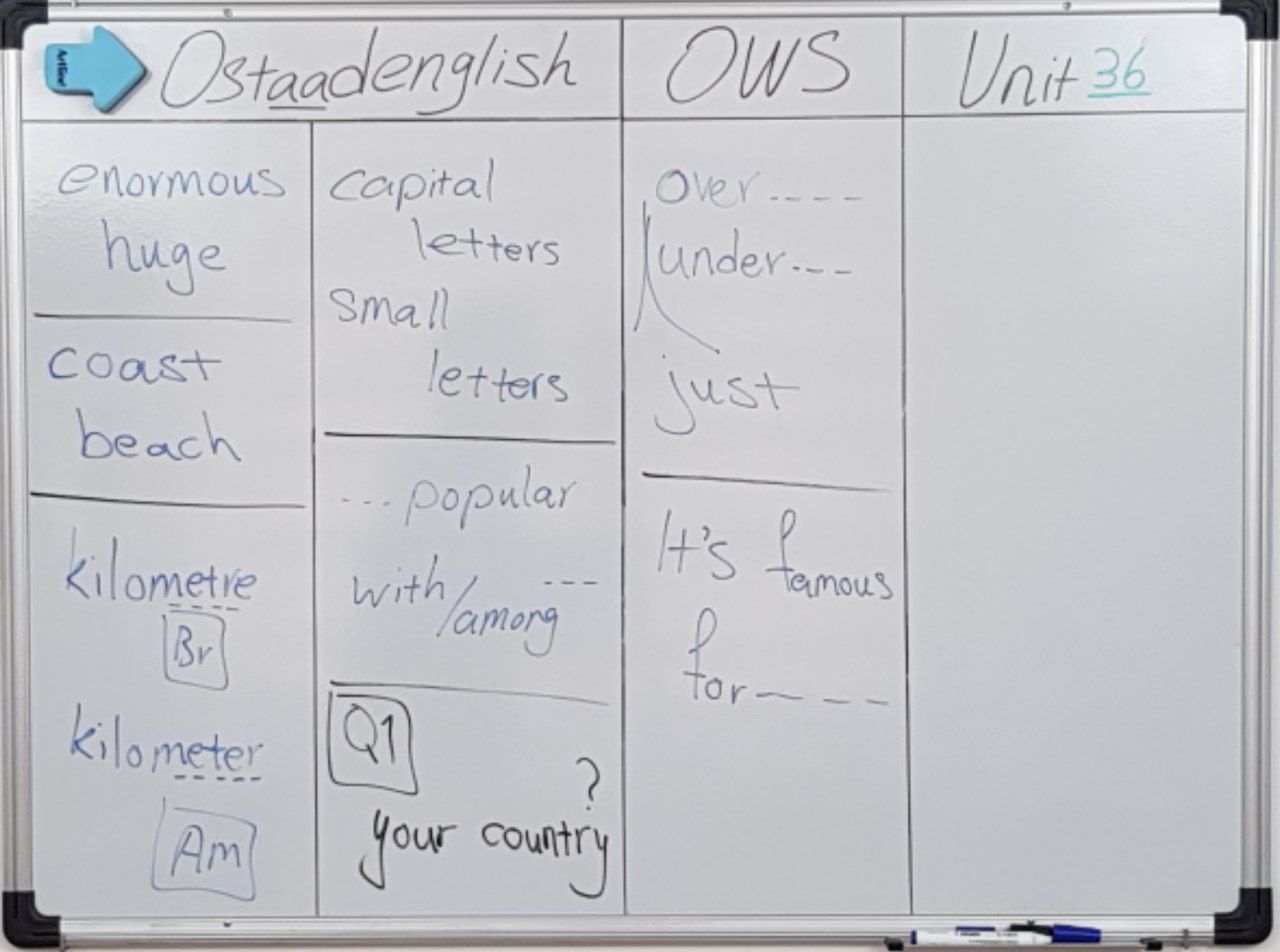 Ostaadenglish
OWS
Unit 36
enormous
huge
coast
beach
kilometre
Br
kilometer
Am
capital
letters
small
letters
... popular
with/among ---
Q1
?
your country
over ----
under ---
just
It's famous
for ----